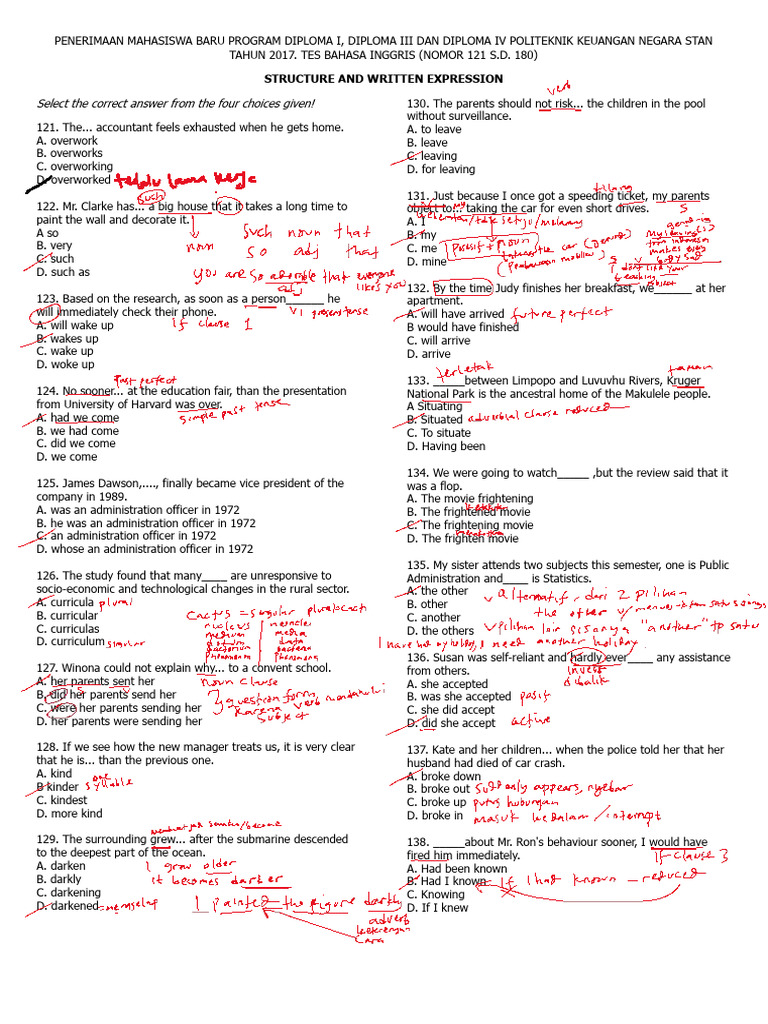 PENERIMAAN MAHASISWA BARU PROGRAM DIPLOMA I, DIPLOMA III DAN DIPLOMA IV POLITEKNIK KEUANGAN NEGARA STAN
TAHUN 2017. TES BAHASA INGGRIS (NOMOR 121 S.D. 180)
STRUCTURE AND WRITTEN EXPRESSION
Select the correct answer from the four choices given!
121. The... accountant feels exhausted when he gets home.
A. overwork
B. overworks
C. overworking
D. overworked terlalu lama kerja
such
122. Mr. Clarke has... a big house that it takes a long time to
paint the wall and decorate it.
A so
B. very
C. such
D. such as
noun
such noun that
so adj that
you are so adorable that everyone
likes you
adj
123. Based on the research, as soon as a person______ he
will immediately check their phone.
V1 present tense
A. will wake up
if clause 1
B. wakes up
C. wake up
D. woke up
Past perfect
124. No sooner... at the education fair, than the presentation
from University of Harvard was over.
simple past tense
A. had we come
B. we had come
C. did we come
D. we come
125. James Dawson,...., finally became vice president of the
company in 1989.
A. was an administration officer in 1972
B. he was an administration officer in 1972
C. an administration officer in 1972
D. whose an administration officer in 1972
126. The study found that many____ are unresponsive to
socio-economic and technological changes in the rural sector.
A. curricula plural
B. curricular
C. curriculas
D. curriculum singular
cactus = singular plural = cacti
nucleus nuclei
medium media
datum data
bacterium bacteria
phenomenon phenomena
127. Winona could not explain why... to a convent school.
A. her parents sent her
S V
noun clause
B. did her parents send her
C. were her parents sending her
D. her parents were sending her
question form,
karena verb mendahului
subject
128. If we see how the new manager treats us, it is very clear
that he is... than the previous one.
A. kind
one
B kinder syllable
C. kindest
D. more kind
/become
129. The surrounding grew... after the submarine descended
to the deepest part of the ocean.
A. darken
I grow older
B. darkly
it becomes darker
C. darkening
D. darkened
I painted the figure darkly
adverb
keterangan
cara
verb
130. The parents should not risk... the children in the pool
without surveillance.
A. to leave
B. leave
C. leaving
D. for leaving
tilang
131. Just because I once got a speeding ticket, my parents
object to... taking the car for even short drives.
keberatan/tdk setuju/melarang
A. I
B. my
C. me
D. mine
posesif + noun
taking the car (Gerund)
S
gerund-ing
makes every
body sad
I don't like your
speaking
object
132. By the time Judy finishes her breakfast, we_______ at her
apartment.
A. will have arrived future perfect
B would have finished
C. will arrive
D. arrive
terletak
taman
133. _____between Limpopo and Luvuvhu Rivers, Kruger
National Park is the ancestral home of the Makulele people.
A Situating
B. Situated adverbial clause reduced
C. To situate
D. Having been
134. We were going to watch_____ ,but the review said that it
was a flop.
A. The movie frightening
B. The frightened movie
C. The frightening movie
D. The frighten movie
135. My sister attends two subjects this semester, one is Public
Administration and____ is Statistics.
A. the other
B. other
C. another
D. the others
alternatif, dari 2 pilihan
the other
pilihan lain sisanya "another"
I have had my holiday, I need another holiday
136. Susan was self-reliant and hardly ever____ any assistance
from others.
inversi
dibalik
A. she accepted
B. was she accepted pasif
C. she did accept
D. did she accept active
137. Kate and her children... when the police told her that her
husband had died of car crash.
A. broke down
B. broke out suddenly appears, nyebar
C. broke up putus hubungan
D. broke in masuk kedalam/interrupt
138. _____about Mr. Ron's behaviour sooner, I would have
fired him immediately.
if clause 3
A. Had been known
B. Had I known if I had known - reduced
C. Knowing
D. If I knew